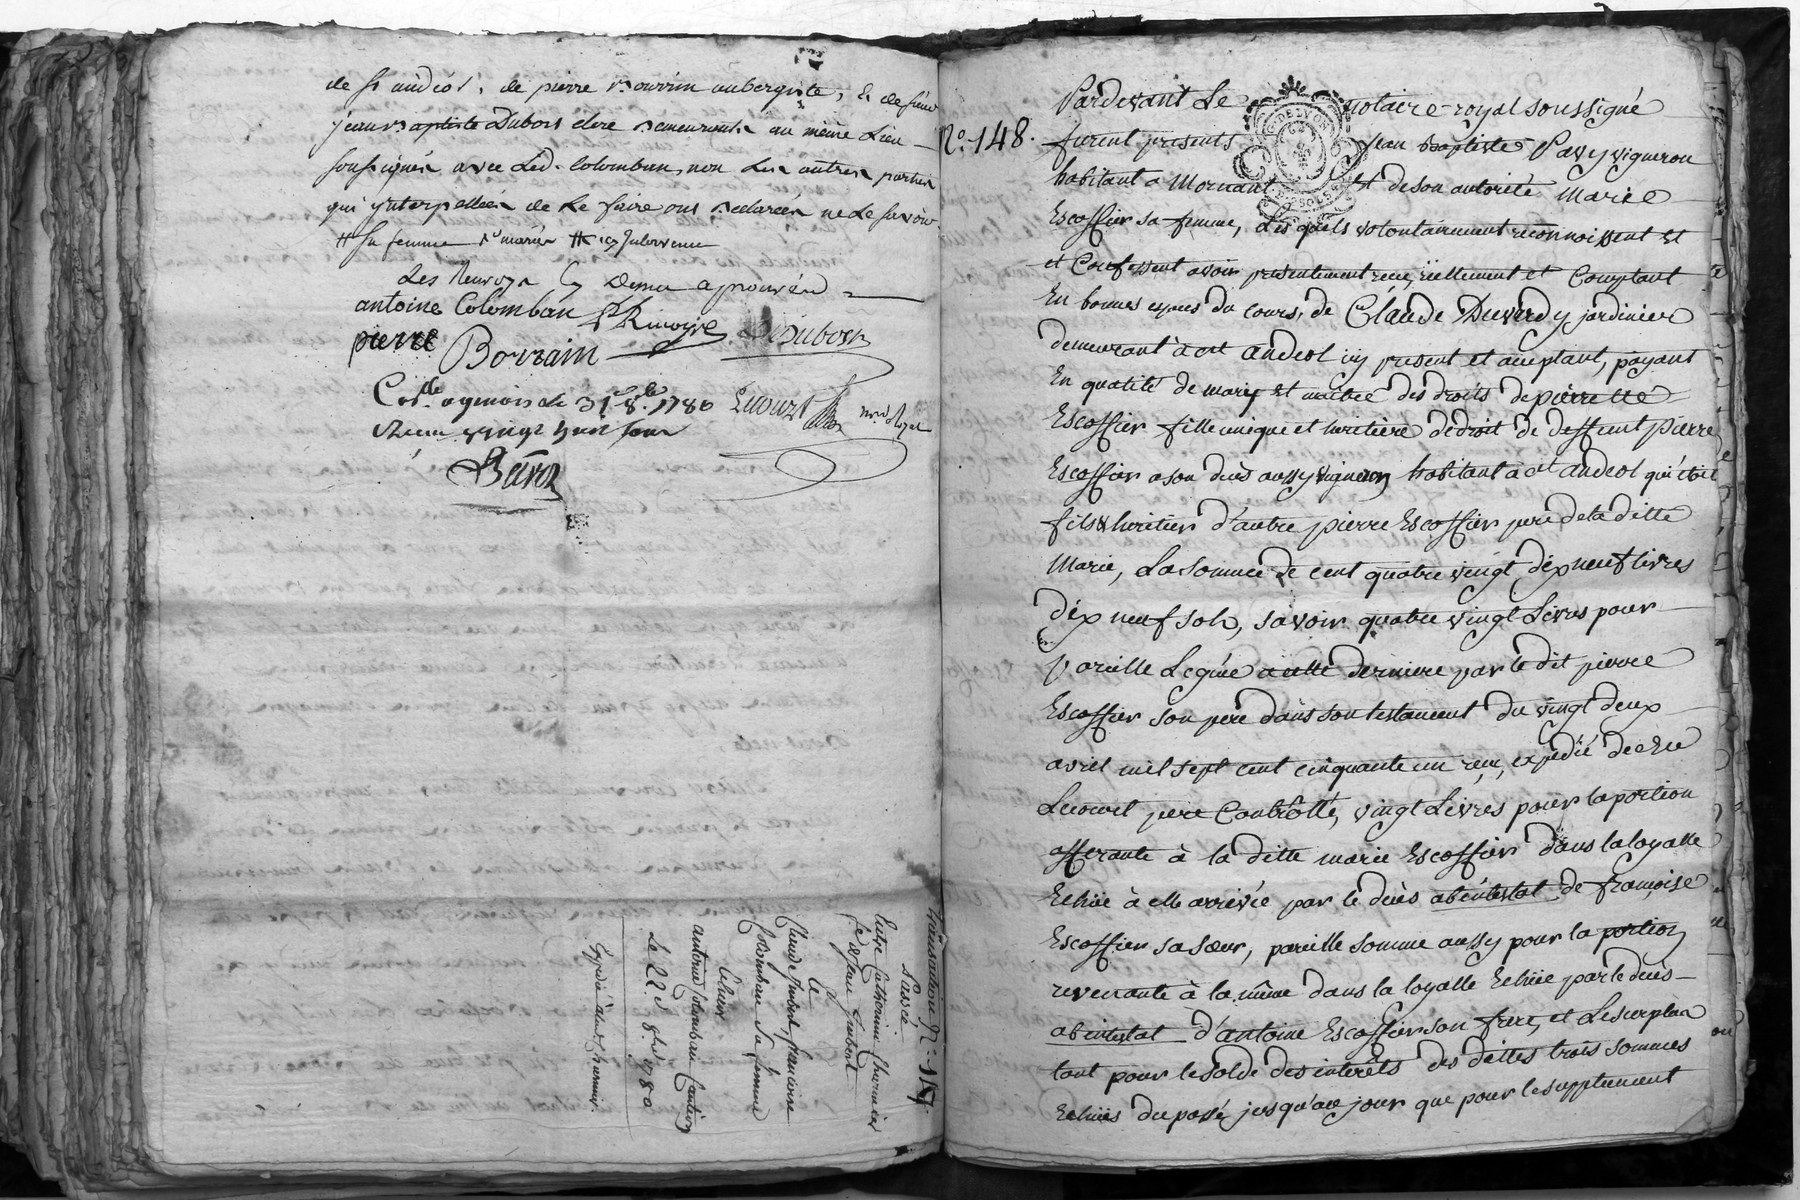 de St andéol, de pierre Bourrin aubergiste, & de sieur
jean Baptiste Dubois clerc demeurants au même Lieu
soussignés avec Led. Colomban, non Les autres parties
qui ynterpellées de Le faire ont declarées ne Le savoir
# sa femme
Les Renvoys cy dessus aprouvéés
antoine Colomban
pierre Borrain
Dubois
Cont.lle a 31 8bre 1780
Reçu vingt huit sous
not. Royal
Baron
Transaction N.o 147
Passée
Entre Catherine
& Jean Jmbert
Et
Claude Jmbert françoise
Colomban Sa femme
antoine Colomban Caution
Le 22 8bre 1780
Expédié
N.o 148.
Pardevant Le notaire-royal soussigné
furent présents Jean baptiste Pavy vigneron
habitant a Mornant Et de son autorité Marie
Escoffier sa femme, Lesquels volontairement reconnoissent Et
et Confessent avoir présentement reçu, réellement et Comptant
En bonnes espèces du cours, de Claude Duverdy jardinier
demeurant à st andeol icy present et acceptant, payant
En qualité de mary Et maitre des droits de pierrette
Escoffier fille unique et heritière de droit de deffunt pierre
Escoffier a son decès aussy vigneron habitant a st andeol qui étoit
fils & héritier d'autre pierre Escoffier père de la ditte
Marie, La somme de cent quatre vingt dix neuf livres
dix neuf sols, savoir quatre vingt Livres pour
pareille Leguée a cette derniere par le dit pierre
Escoffier son père dans son testament du vingt deux
avril mil sept cent cinquante un reçu, expédié de Me
Lecourt père Controllé, vingt Livres pour la portion
afferante à la ditte marie Escoffier dans la loyalle
Echüe à elle arrivée par le decès abintestat de françoise
Escoffier sa sœur, pareille somme aussy pour la portion
revenante à la même dans la loyalle Echüe par le decès
abintestat d'antoine Escoffier son frere, et Le surplus
tant pour le solde des interêts des dittes trois sommes
Echües du passé jusqu'au jour que pour le supplement